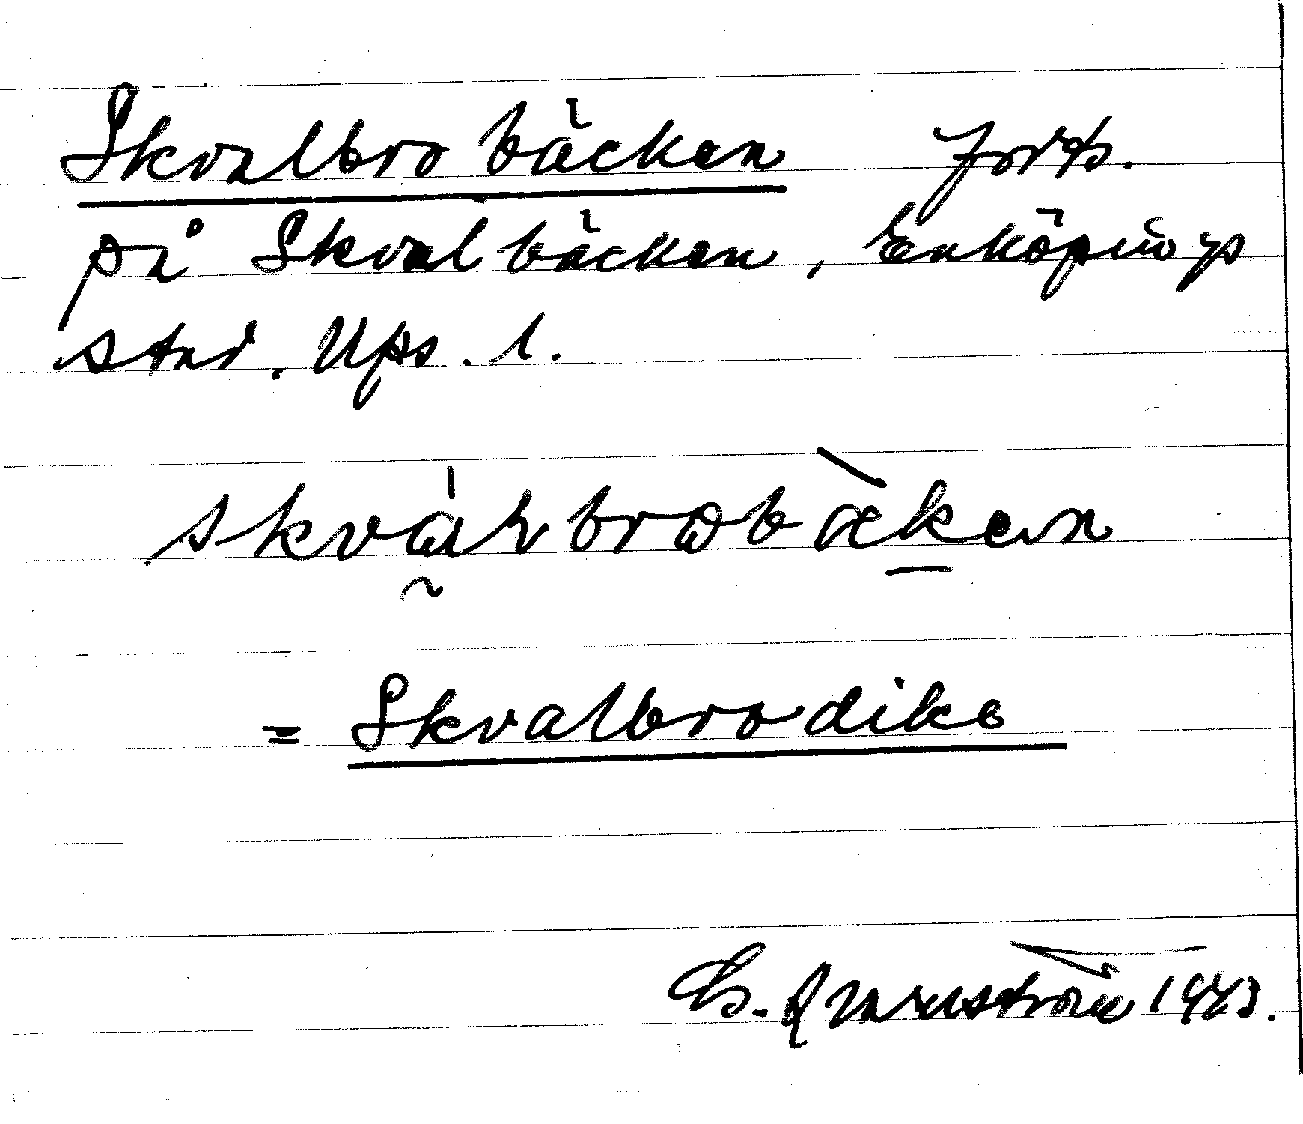 Skvalbrobäcken forts.
på Skvalbäcken, Enköpings
stad. Ups. l.
= Skvalbrodike
E. Qvarnström 1943.